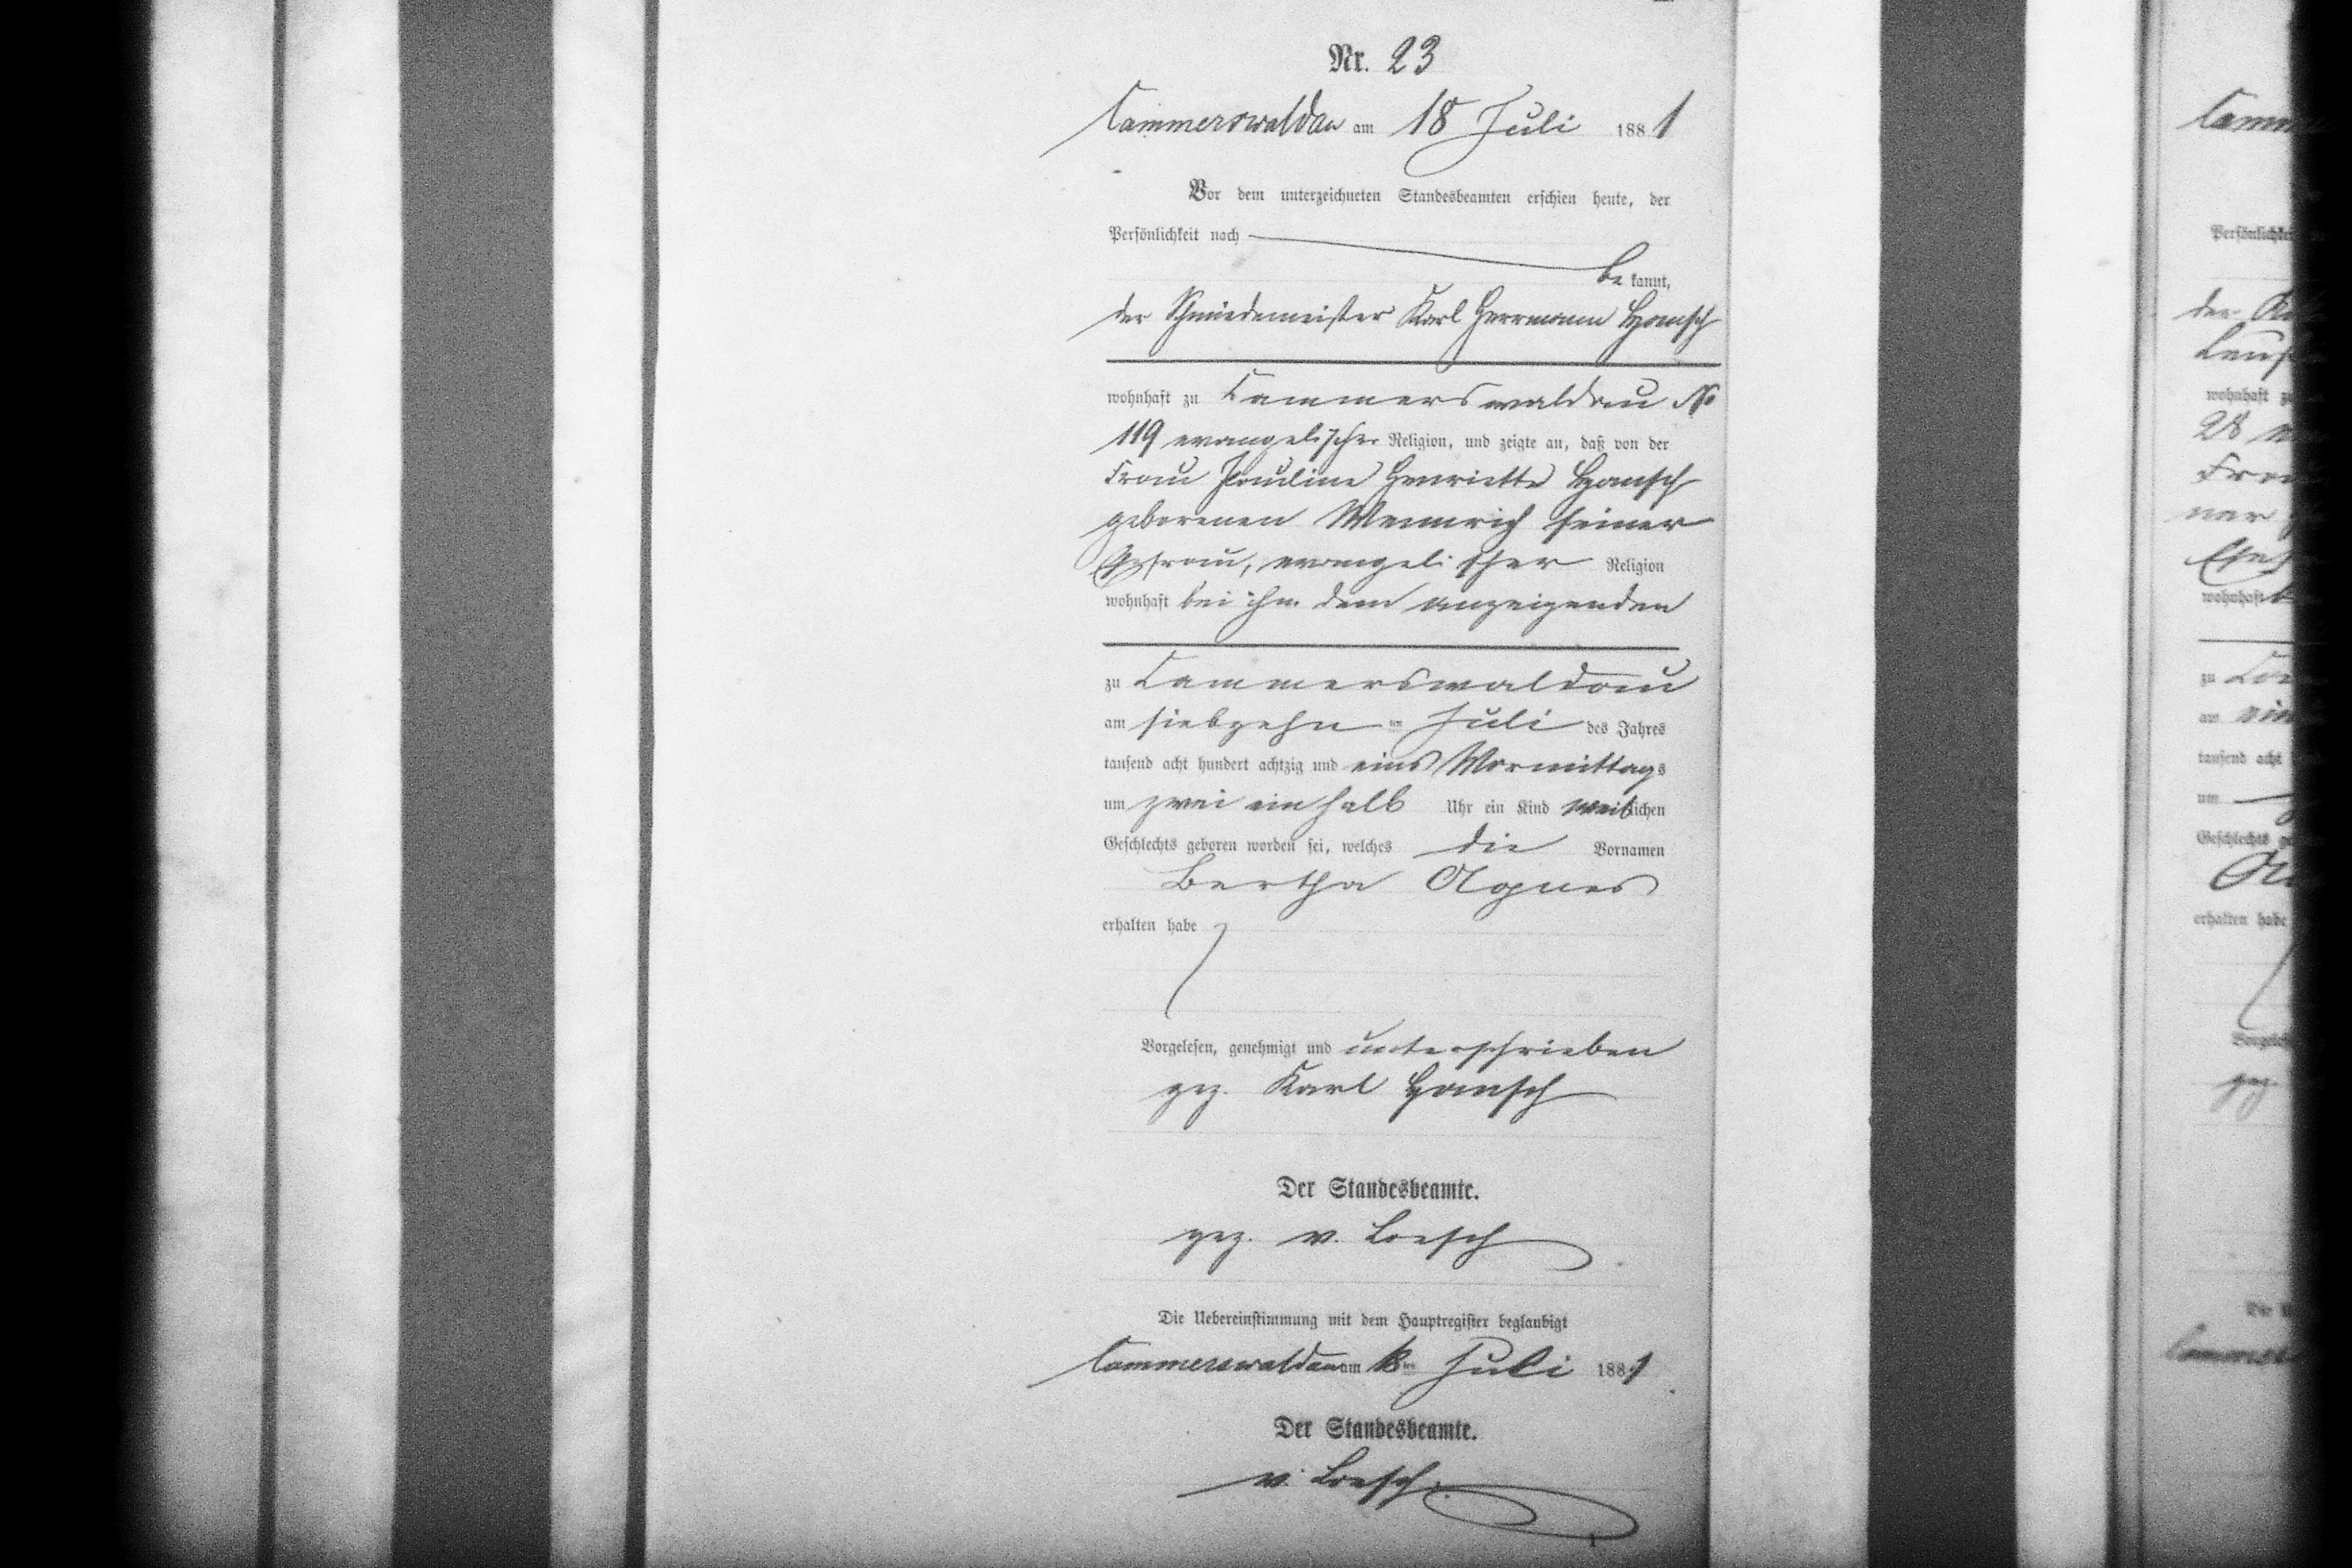 Nr. 23
Cammerswaldau am 18 Juli 1881
Vor dem unterzeichneten Standesbeamten erschien heute, der
Persönlichkeit nach
be kannt,
der Schmiedemeister Karl Herrmann Hansch
wohnhaft zu Cammerswaldau No
119 evangelischer Religion, und zeigte an, daß von der
Frau Pauline Henriette Hansch
geborenen Weinrich seiner
Ehefrau, evangelischer Religion
wohnhaft bei ihm dem anzeigenden
zu Cammerswaldau
am siebzehn ten Juli des Jahres
tausend acht hundert achtzig und eins Vormittags
um zwei ein halb Uhr ein Kind weiblichen
Geschlechts geboren worden sei, welches die Vornamen
Bertha Agnes
erhalten habe
Vorgelesen, genehmigt und unterschrieben
gez. Karl Hansch
Der Standesbeamte.
gez. v. Loesch
Die Uebereinstimmung mit dem Hauptregister beglaubigt
Cammerswaldau am 18ten Juli 1881
Der Standesbeamte.
v. Loesch